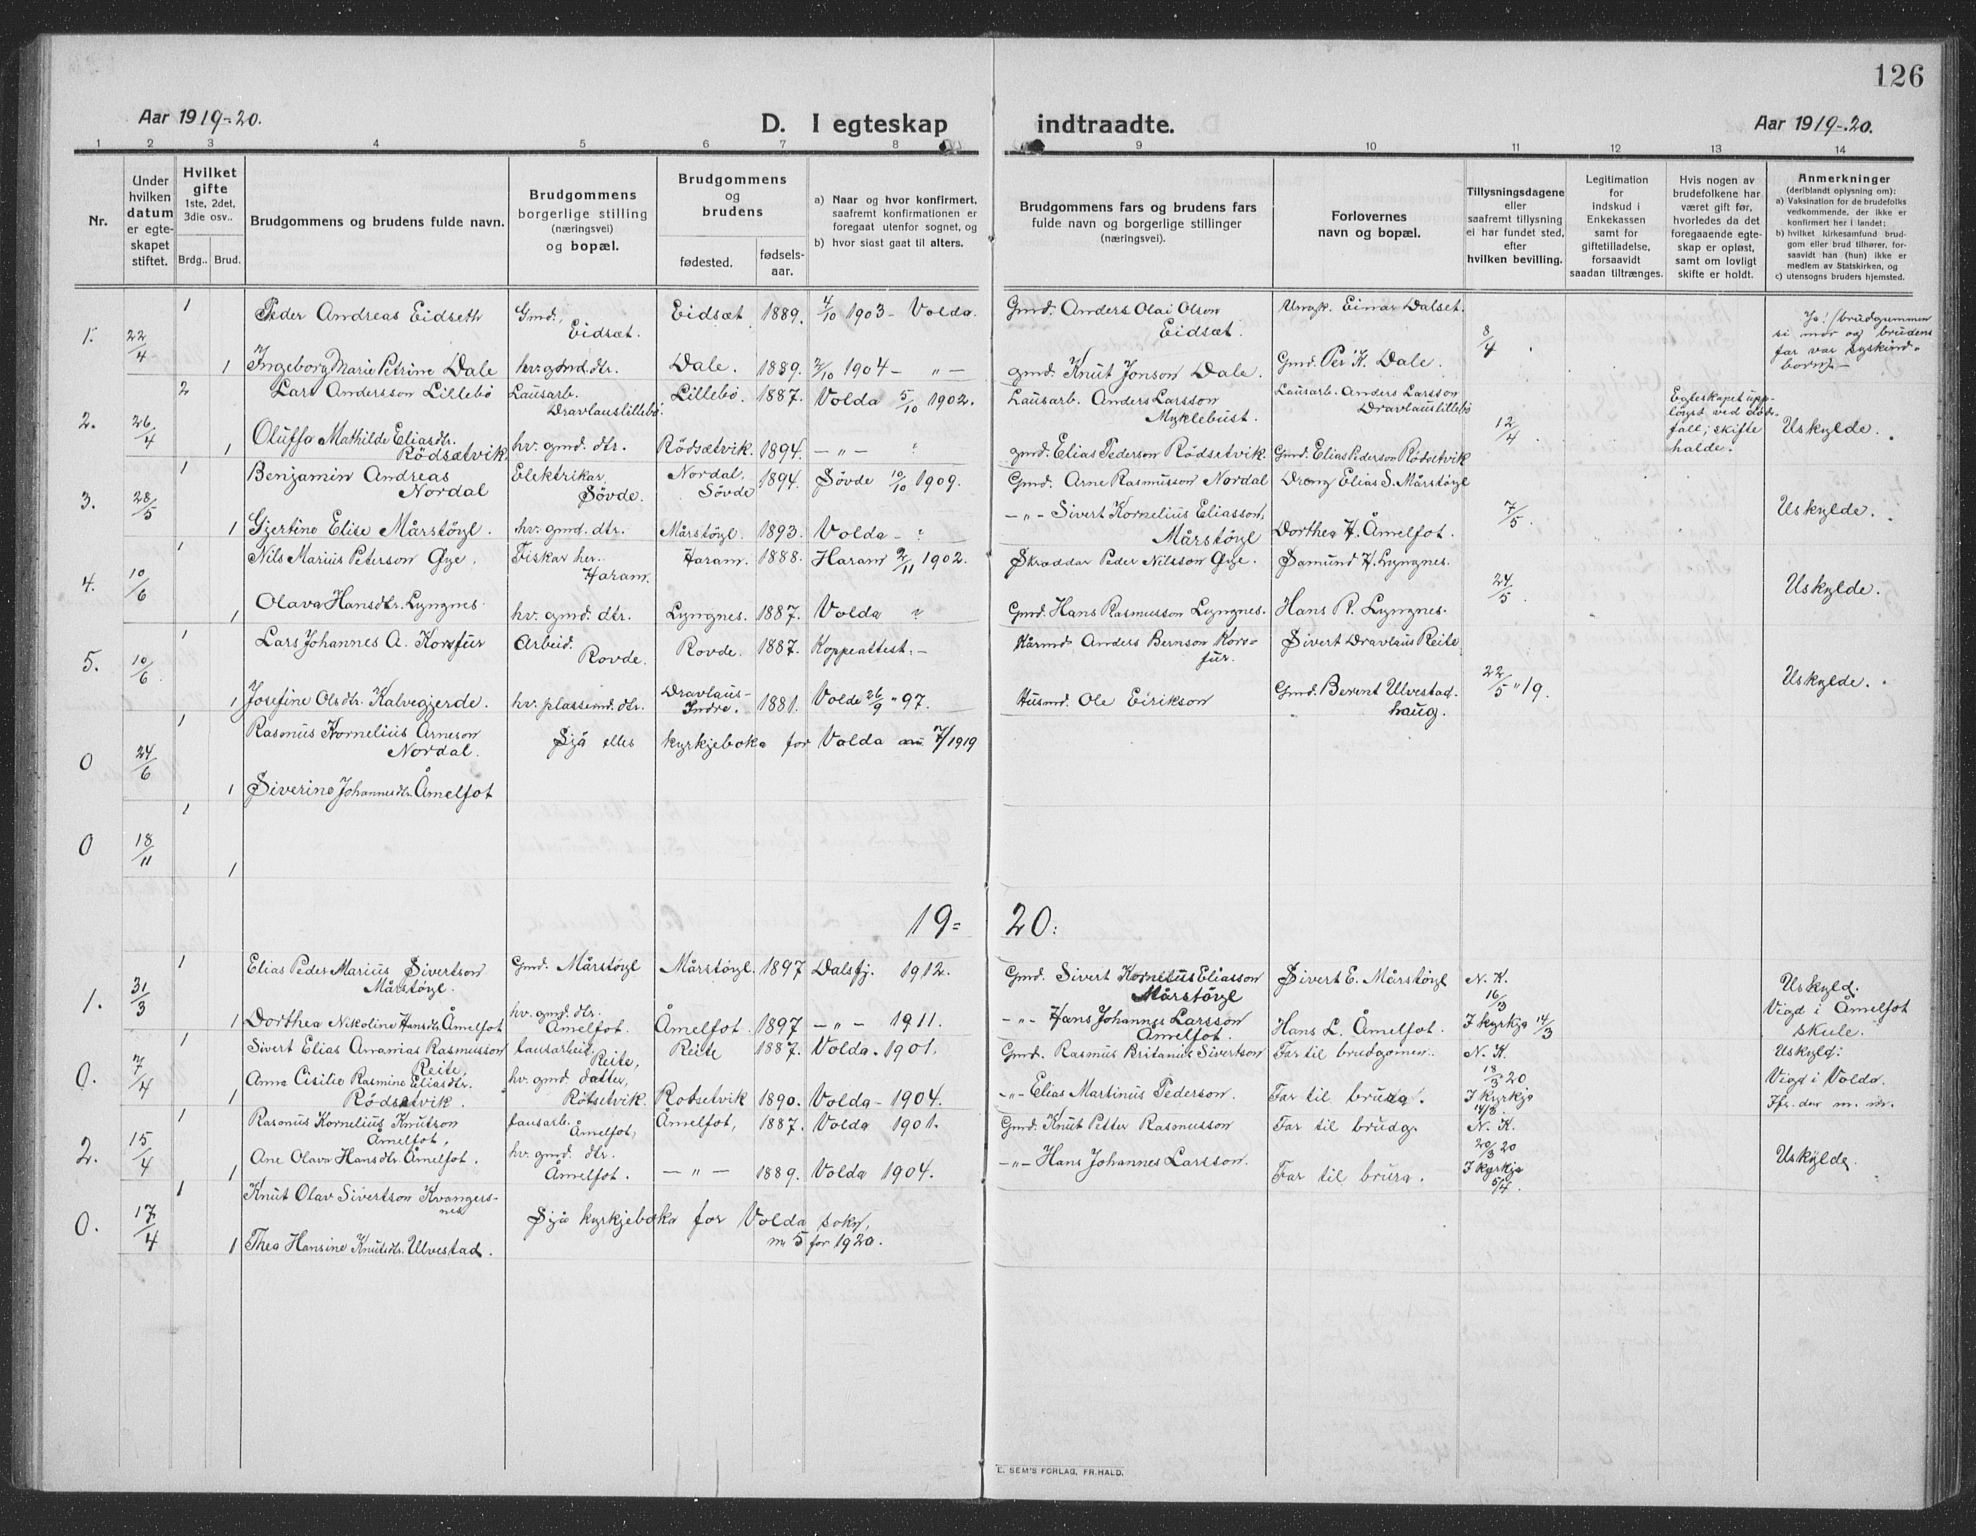 126
Aar 1919-20. D. I egteskap indtraadte. Aar 1919-20.
1 2 3 4 5 6 7 8 9 10 11 12 13 14
Nr.
Under
hvilken
datum
er egte-
skapet
stiftet.
Hvilket
gifte
1ste, 2det,
3die osv..
Brdg.. Brud.
Brudgommens og brudens fulde navn.
Brudgommens
borgerlige stilling
(næringsvei)
og bopæl.
Brudgommens
og
brudens
fødested.
fødsels-
aar.
a) Naar og hvor konfirmert,
saafremt konfirmationen er
foregaat utenfor sognet, og
b) hvor sidst gaat til alters.
Brudgommens fars og brudens fars
fulde navn og borgerlige stillinger
(næringsvei).
Forlovernes
navn og bopæl.
Tillysningsdagene
eller
saafremt tillysning
ei har fundet sted,
efter
hvilken bevilling.
Legitimation
for
indskud i
Enkekassen
samt for
giftetilladelse,
forsaavidt
saadan tiltrænges.
Hvis nogen av
brudefolkene har
været gift før,
hvorledes da det
foregaaende egte-
skap er opløst,
samt om lovligt
skifte er holdt.
Anmerkninger
(deriblandt oplysning om):
a) Vaksination for de brudefolks
vedkommende, der ikke er
konfirmert her i landet;
b) hvilket kirkesamfund brud-
gom eller brud tilhører, for-
saavidt han (hun) ikke er
medlem av Statskirken, og
c) utensogns brudens hjemsted.
1. 22/4 1 Peder Andreas Eidseth Gmd. Eidsæt. Eidsæt 1889. 4/10 1903 - Volda. Gmd. Anders Olai Olson Eidsæt. Einar Dalset. 8/4
Ja! brudgummen
si mor og brudens
far var syskind-
born.
1 Ingeborg Marie Petrine Dale hv. gmd. dtr. Dale. 1889. 2/10 1904 - „ - gmd. Knut Jonson Dale. Gmd. Per K. Dale.
2. 26/4 2 Lars Andersson Lillebø Lausarb. Dravlauslillebø. Lillebø. 1887. Volda 5/10 1902. Lausarb. Anders Larsson Myklebust. Lausarb. Anders Larsson Dravlauslillebø 12/4
Egteskapet upp-
løyst ved døds-
fall; skifte
halde.
Uskylde.
1 Oluffa Mathilde Eliasdtr. Rødsætvik. hv. gmd. dtr. Rødsætvik. 1894. - „ - gmd. Elias Pederson Rødsetvik. Gmd. Elias Pederson Rødsetvik
3. 28/5 1 Benjamin Andreas Nordal Elektrikar, Søvde. Nordal, Søvde 1894. Søvde 10/10 1909. Gmd. Arne Rasmusson Nordal Dreng Elias S. Mårstøyl 7/5. Uskylde.
1 Gjertine Elise Mårstøyl. hv. gmd. dtr. Mårstøyl. 1893. Volda - ? - „ - Sivert Kornelius Eliasson, Mårstøyl Dorthea H. Åmelfot.
4. 10/6 1 Nils Marius Peterson Øye, Fiskar her. Haram. Haram. 1888. Haram 2/11 1902. Skraddar Peder Nilsson Øye. Samund H. Lyngnes. 24/5. Uskylde.
1 Olava Hansdtr. Lyngnes. hv. gmd. dtr. Lyngnes. 1887. Volda ? Gmd. Hans Rasmusson Lyngnes. Hans R. Lyngnes.
5. 10/6 1 Lars Johannes A. Korsfur Arbeid. Rovde. Rovde. 1887. Koppeattest. - Anders Bernson Korsfur. Sivert Dravlaus Reite 22/5 „ 19. Uskylde.
1 Josefine Olsdtr. Kalvegjerde. hv. plassmd. dtr. Dravlaus-Indre. 1881. Volda 26/9 „ 97. Husmd. Ole Eirikson Gmd. Berent Ulvestadhaug.
0 24/6 1 Rasmus Kornelius Arneson Nordal. Sjå elles kyrkjeboka for Volda 7/1919
1 Siverine Johannesdtr. Åmelfot
0 18/11 1
1
19= 20:
1. 31/3 1 Elias Peder Marius Sivertson Mårstøyl. Gmd. Mårstøyl Mårstøyl. 1897 Dalsfj. 1912. Gmd. Sivert Kornelius Eliasson Mårstøyl Sivert E. Mårstøyl N. K. 16/3
Uskyld.
Vigd i Åmelfot
skule.
1 Dorthea Nikoline Hansdtr. Åmelfot hv. gmd. dtr. Åmelfot. Åmelfot. 1897 - „ - 1911. - „ - Hans Johannes Larsson Åmelfot. Hans L. Åmelfot. I kyrkja 14/3
0. 7/4 1 Sivert Elias Ananias Rasmusson Reite, Lausarbeid Reite, Reite 1887. Volda. 1901. Gmd. Rasmus Britanius Sivertson Far til brudgomen. N. K. 18/3 20
Uskyld:
Vigd i Volda.
1 Anna Cisilie Rasmine Eliasdtr. Rødsetvik. hv. gmd. datter, Rotsetvik. Rotsetvik 1890. Volda - 1904. - „ - Elias Martinus Pederson. Far til brura. I kyrkja 14/3.
2. 15/4 1 Rasmus Kornelius Knutson Åmelfot, Lausarb. Åmelfot, Åmelfot, 1887. Volda 1901. Gmd. Knut Petter Rasmusson Far til brudg. N. K. 20/3 20 Uskylde.
1 Ane Olava Hansdtr. Åmelfot. hv. gmd. dtr. Åmelfot. - „ - 1889. Volda 1904. - „ - Hans Johannes Larsson. Far til brura. I kyrkja 5/4.
0. 17/4 1 Knut Olav Sivertson Kvangersnes Sjå kyrkjeboka for Volda sokn,
nr 5 for 1920.
1 Thea Hansine Knutsdtr. Ulvestad.
E. SEM'S FORLAG, FR.HALD.